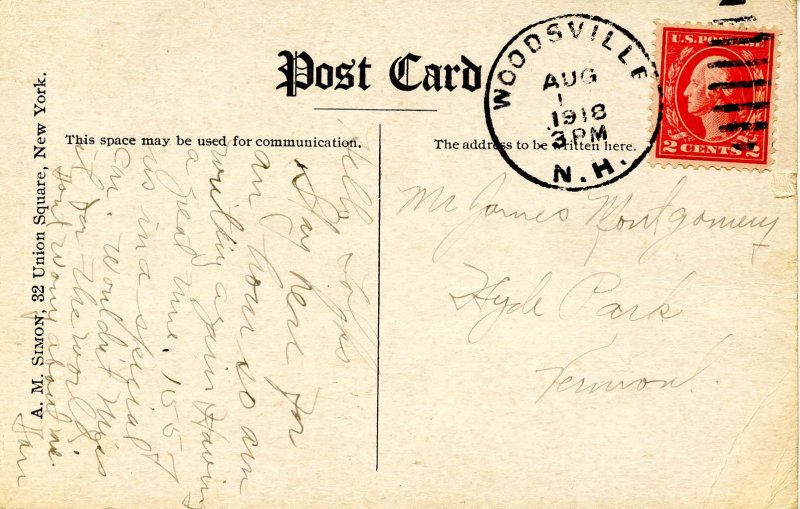 Post Card
This space may be used for communication.
The address to be written here.
A. M. SIMON, 32 Union Square, New York.
WOODSVILLE
AUG
1
1918
3 PM
N.H.
U.S. POSTAGE
2 CENTS 2
Mr James Montgomery
Hyde Park
Vermont
Hello Folks
Stay here for
an hour so am
writing again Having
a great time. 1557
us in a special
car. Wouldn't miss
it for the world.
Dont worry about me.